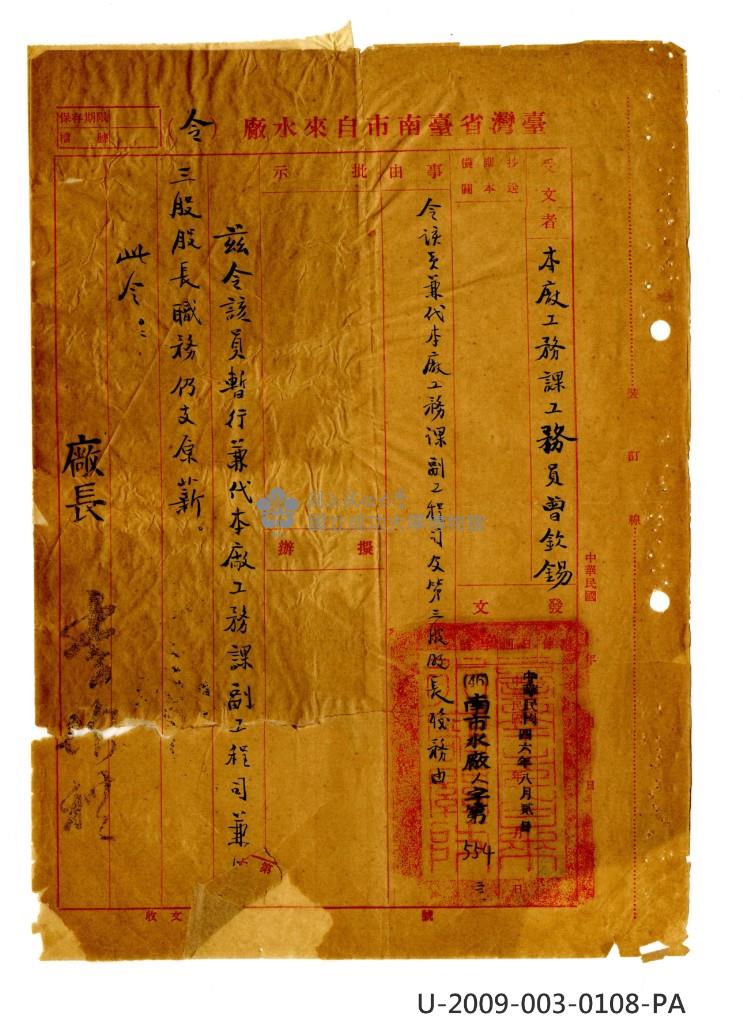 臺灣省臺南市自來水廠（令）
保存期限
檔號
受文者
本廠工務課工務員曾欽錫
抄送副本機關
事由
令該員兼代本廠工務課副工程司及第三股股長職務由
批示
擬辦
發文
中華民國四六年八月貳日
(46)南市水廠人字第554
號
茲令該員暫行兼代本廠工務課副工程司兼第
三股股長職務仍支原薪。
此令
廠長
收文
裝訂線
中華民國年月日
國立成功大學博物館
U-2009-003-0108-PA